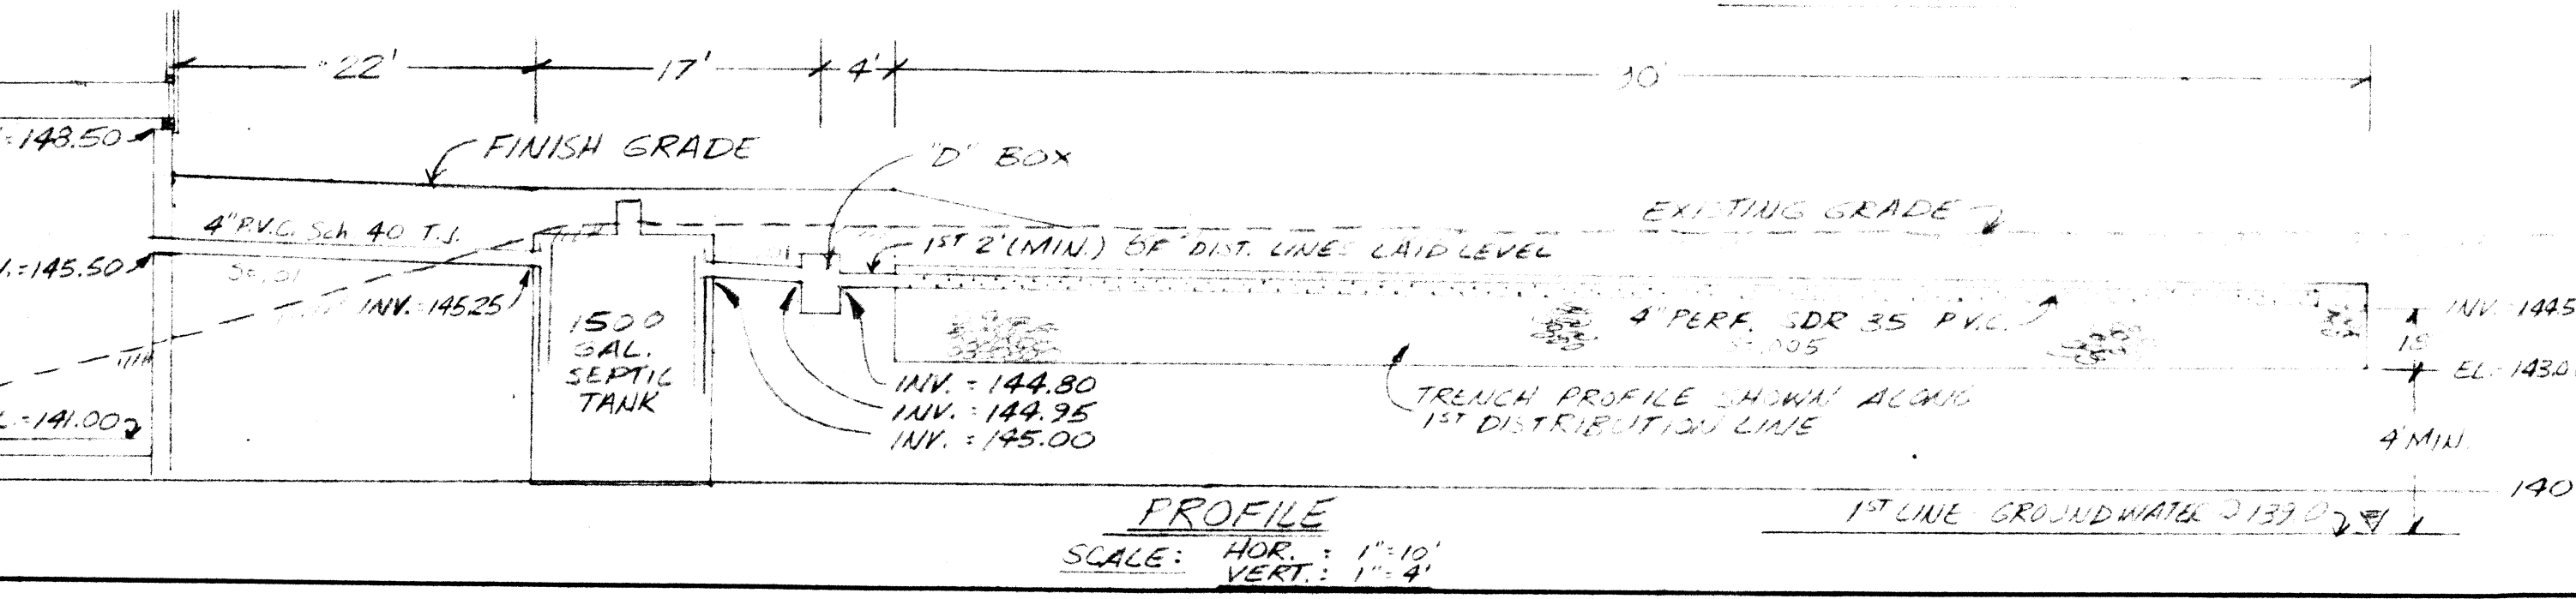 22'
17'
4'
90'
=148.50
FINISH GRADE
"D" BOX
EXISTING GRADE
4" P.V.C. Sch 40 T.J.
1ST 2' (MIN.) OF DIST. LINES LAID LEVEL
.=145.50
S=.01
INV. 145.25
1500
GAL.
SEPTIC
TANK
4" PERF. SDR 35 P.V.C.
S=.005
INV. 144.5
18
EL. 143.0
INV. = 144.80
INV. = 144.95
INV. = 145.00
TRENCH PROFILE SHOWN ALONG
1ST DISTRIBUTION LINE
=141.00
4' MIN.
140
PROFILE
1ST LINE GROUNDWATER 139.0
SCALE: HOR. : 1"=10'
VERT. : 1"=4'